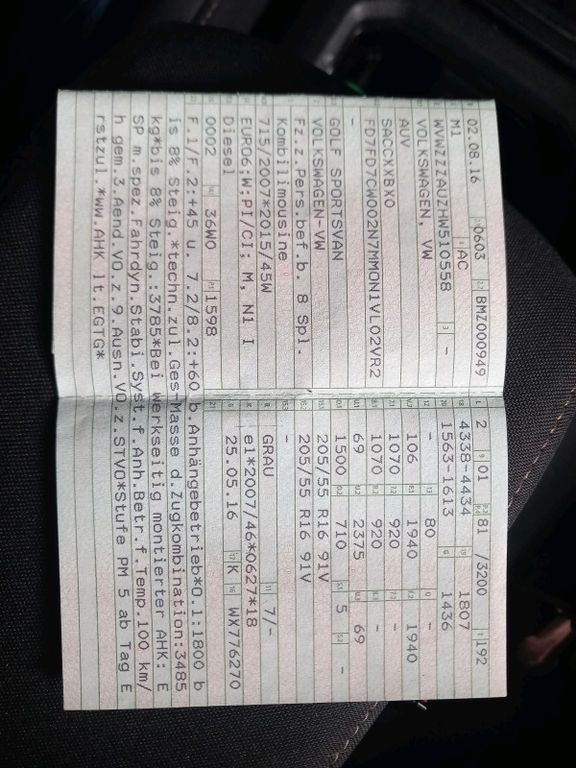 02.08.16 0603 BMZ000949
M1 AC
WVWZZZAUZHW510558 -
VOLKSWAGEN, VW
AUV
SACCXXBX0
FD7FD7CW002N7MMON1VL02VR2
-
GOLF SPORTSVAN
VOLKSWAGEN-VW
Fz.z.Pers.bef.b. 8 Spl.
Kombilimousine
715/2007*2015/45W
EURO6;W:PI/CI; M, N1 I
Diesel
0002 36W0 1598
L 2 9 01 81 /3200 192
4338-4434 1807
1563-1613 1436
- 80 -
106 1940 1940
1070 920 -
1070 920 -
69 2375 69
1500 710 5 -
205/55 R16 91V
205/55 R16 91V
-
GRAU 7/-
e1*2007/46*0627*18
25.05.16 K WX776270
F.1/F.2:+45 u. 7.2/8.2:+60 b.Anhängebetrieb*O.1:1800 b
is 8% Steig.*techn.zul.Ges-Masse d.Zugkombination:3485
kg*bis 8% Steig.:3785*Bei werkseitig montierter AHK: E
SP m.spez.Fahrdyn.Stabi.Syst.f.Anh.Betr.f.Temp.100 km/
h gem.3.Aend.VO.z.9.Ausn.VO.z.STVO*Stufe PM 5 ab Tag E
rstzul.*ww.AHK lt.EGTG*